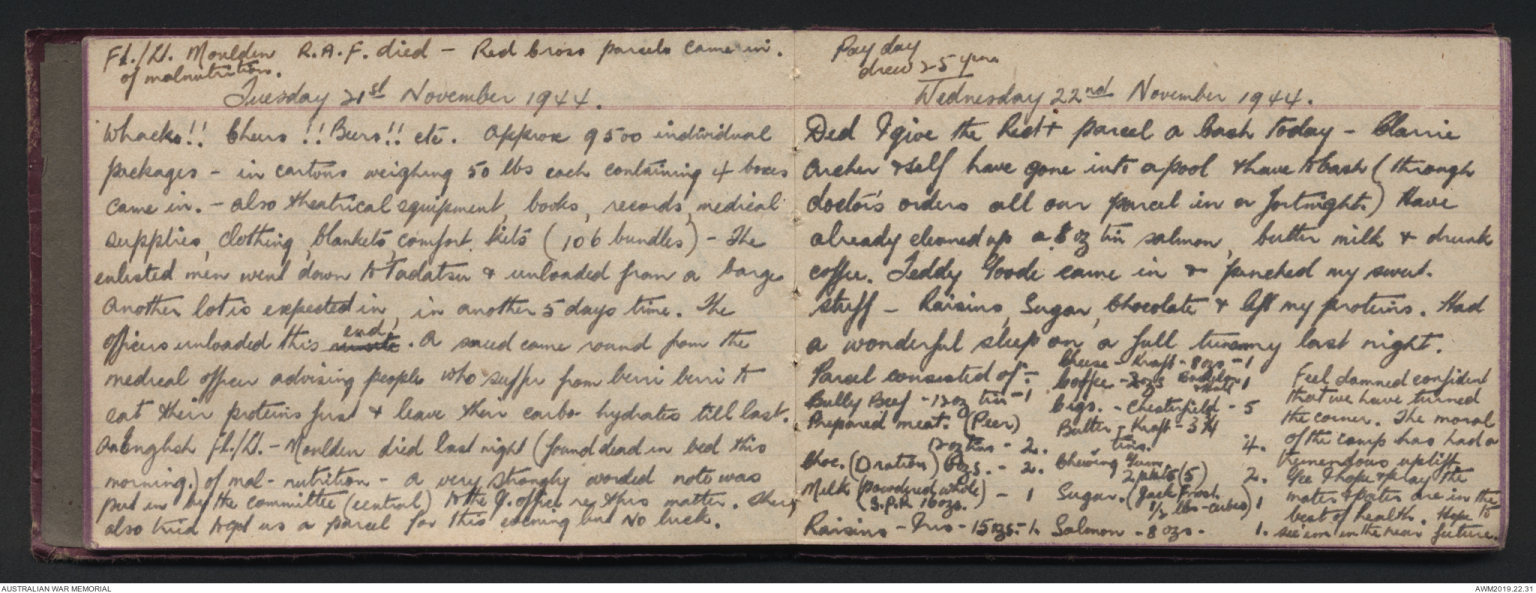 Ft./Lt. Moulden R.A.F. died - Red Cross parcels came in.
of malnutrition.
Tuesday 21st November 1944.
Whacko!! Cheers!! Beers!! etc. Approx 9500 individual
packages - in cartons weighing 50 lbs each containing 4 boxes
came in. - also theatrical equipment, books, records, medical
supplies, clothing, blankets, comfort, kits (106 bundles) - The
enlisted men went down to Tadatsu & unloaded from a barge
Another lot is expected in, in another 5 days time. The
officers unloaded this end. A screed came round from the
medical officer advising people who suffer from berri berri to
eat their proteins first & leave their carbo-hydrates till last.
An English Ft./Lt. - Moulden died last night (found dead in bed this
morning.) of mal-nutrition - a very strongly worded note was
put in by the committee (central) to the J. office re this matter. They
also tried to get us a parcel for this evening but No luck.
Pay day
drew 25 yen
Wednesday 22nd November 1944.
Did I give the Rick parcel a bash today - Clarrie
Archer & self have gone into a pool & have to bash (through
doctor's orders all our parcel in a fortnight.) Have
already cleaned up a 8 oz tin salmon, butter milk & drunk
coffee. Teddy Goode came in & pinched my sweet
stuff - Raisins, Sugar, Chocolate & left my proteins. Had
a wonderful sleep on a full tummy last night.
Parcel consisted of:-
Bully Beef - 12 oz tin - 1
Prepared meat. (Pear)
12 oz tins - 2.
Choc. (D ration) 6 ozs. - 2.
Milk (powdered whole) - 1
(S.P.R. 16 ozs.
Raisins - 15 ozs - 1.
Cheese - Kraft - 8 ozs - 1
Coffee - 2 ozs 1
Cigs. - Chesterfield - 5
Butter - Kraft - 3 3/4
tins. 4.
Chewing Gum
2 pkts (5) 2.
Sugar. (Jack Frost.
1/2 lbs - cubes) 1
Salmon - 8 ozs - 1.
Feel damned confident
that we have turned
the corner. The moral
of the camp has had a
tremendous uplift
Gee I hope & pray the
mater & pater are in the
best of health. Hope to
see 'em in the near future.
AUSTRALIAN WAR MEMORIAL
AWM2019.22.31